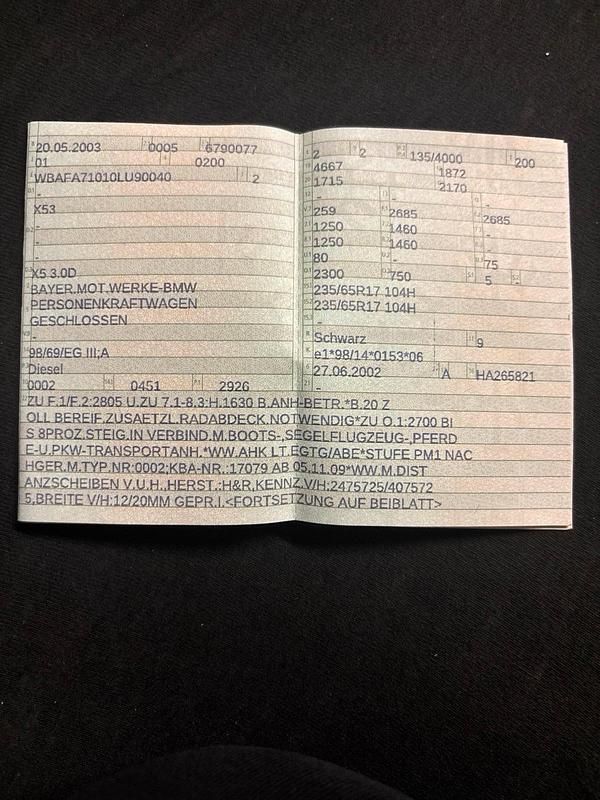 20.05.2003 0005 6790077
01 0200
WBAFA71010LU90040 2
-
X53
-
-
-
X5 3.0D
BAYER.MOT.WERKE-BMW
PERSONENKRAFTWAGEN
GESCHLOSSEN
-
98/69/EG III;A
Diesel
0002 0451 2926
2 2 135/4000 200
4667 1872
1715 2170
- - -
259 2685 2685
1250 1460 -
1250 1460 -
80 - 75
2300 750 5 -
235/65R17 104H
235/65R17 104H
-
Schwarz 9
e1*98/14*0153*06
27.06.2002 A HA265821
-
ZU F.1/F.2:2805 U.ZU 7.1-8.3:H.1630 B.ANH-BETR.*B.20 Z
OLL BEREIF.ZUSAETZL.RADABDECK.NOTWENDIG*ZU O.1:2700 BI
S 8PROZ.STEIG.IN VERBIND.M.BOOTS-,SEGELFLUGZEUG-,PFERD
E-U.PKW-TRANSPORTANH.*WW.AHK LT.EGTG/ABE*STUFE PM1 NAC
HGER.M.TYP.NR:0002;KBA-NR.:17079 AB 05.11.09*WW.M.DIST
ANZSCHEIBEN V.U.H.,HERST.:H&R,KENNZ.V/H:2475725/407572
5,BREITE V/H:12/20MM GEPR.I.<FORTSETZUNG AUF BEIBLATT>